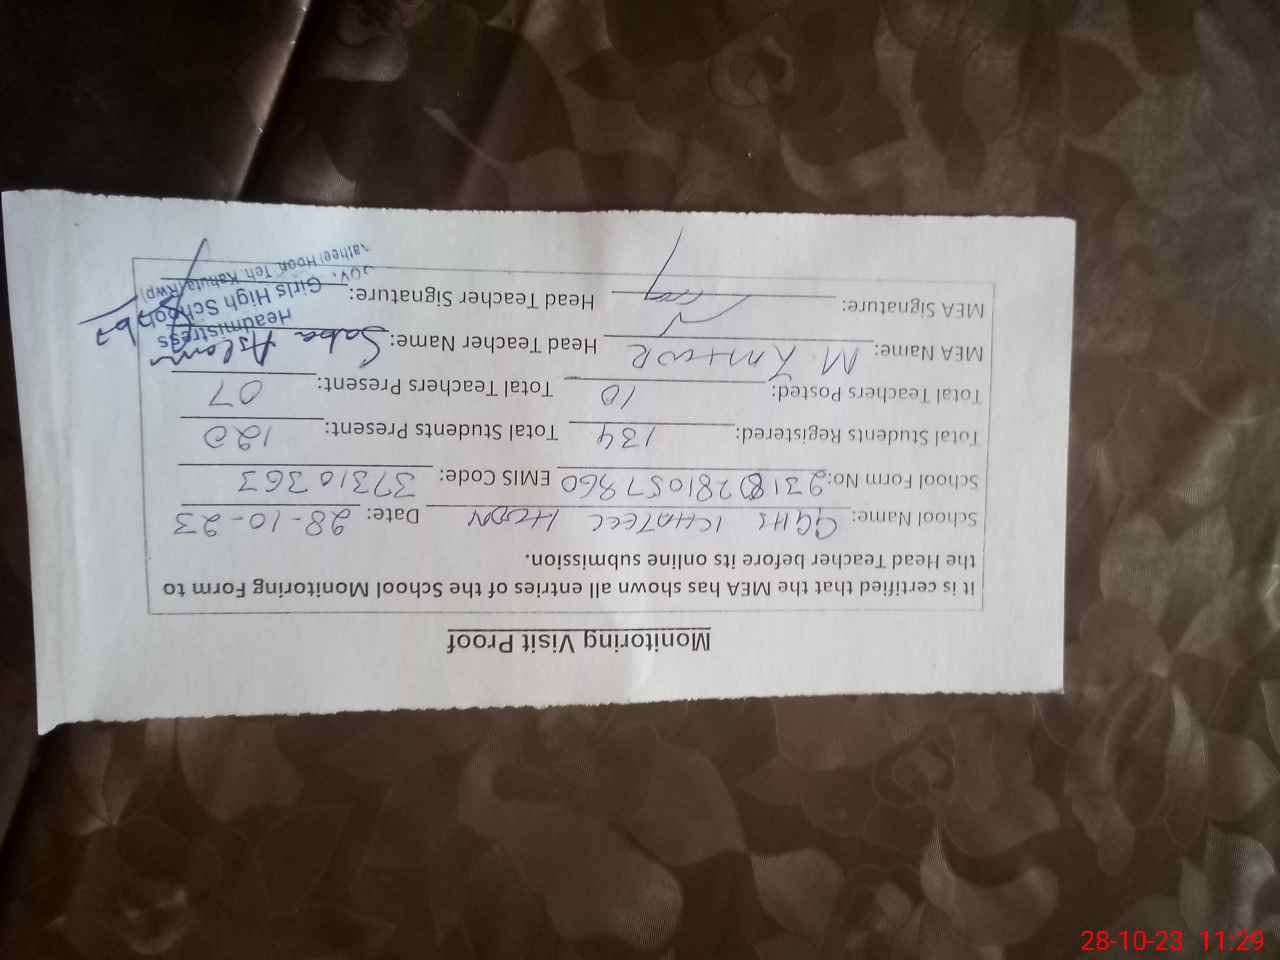 Monitoring Visit Proof
It is certified that the MEA has shown all entries of the School Monitoring Form to
the Head Teacher before its online submission.
School Name: GGHS KHATEEL HOON Date: 28-10-23
School Form No: EMIS Code: 37310363
Total Students Registered: 134 Total Students Present: 120
Total Teachers Posted: 10 Total Teachers Present: 07
MEA Name: M. Head Teacher Name: Saba Aslam
MEA Signature: Head Teacher Signature:
Headmistress
Girls High School
Hoon Teh Kahuta (Rwp)
28-10-23 11:29